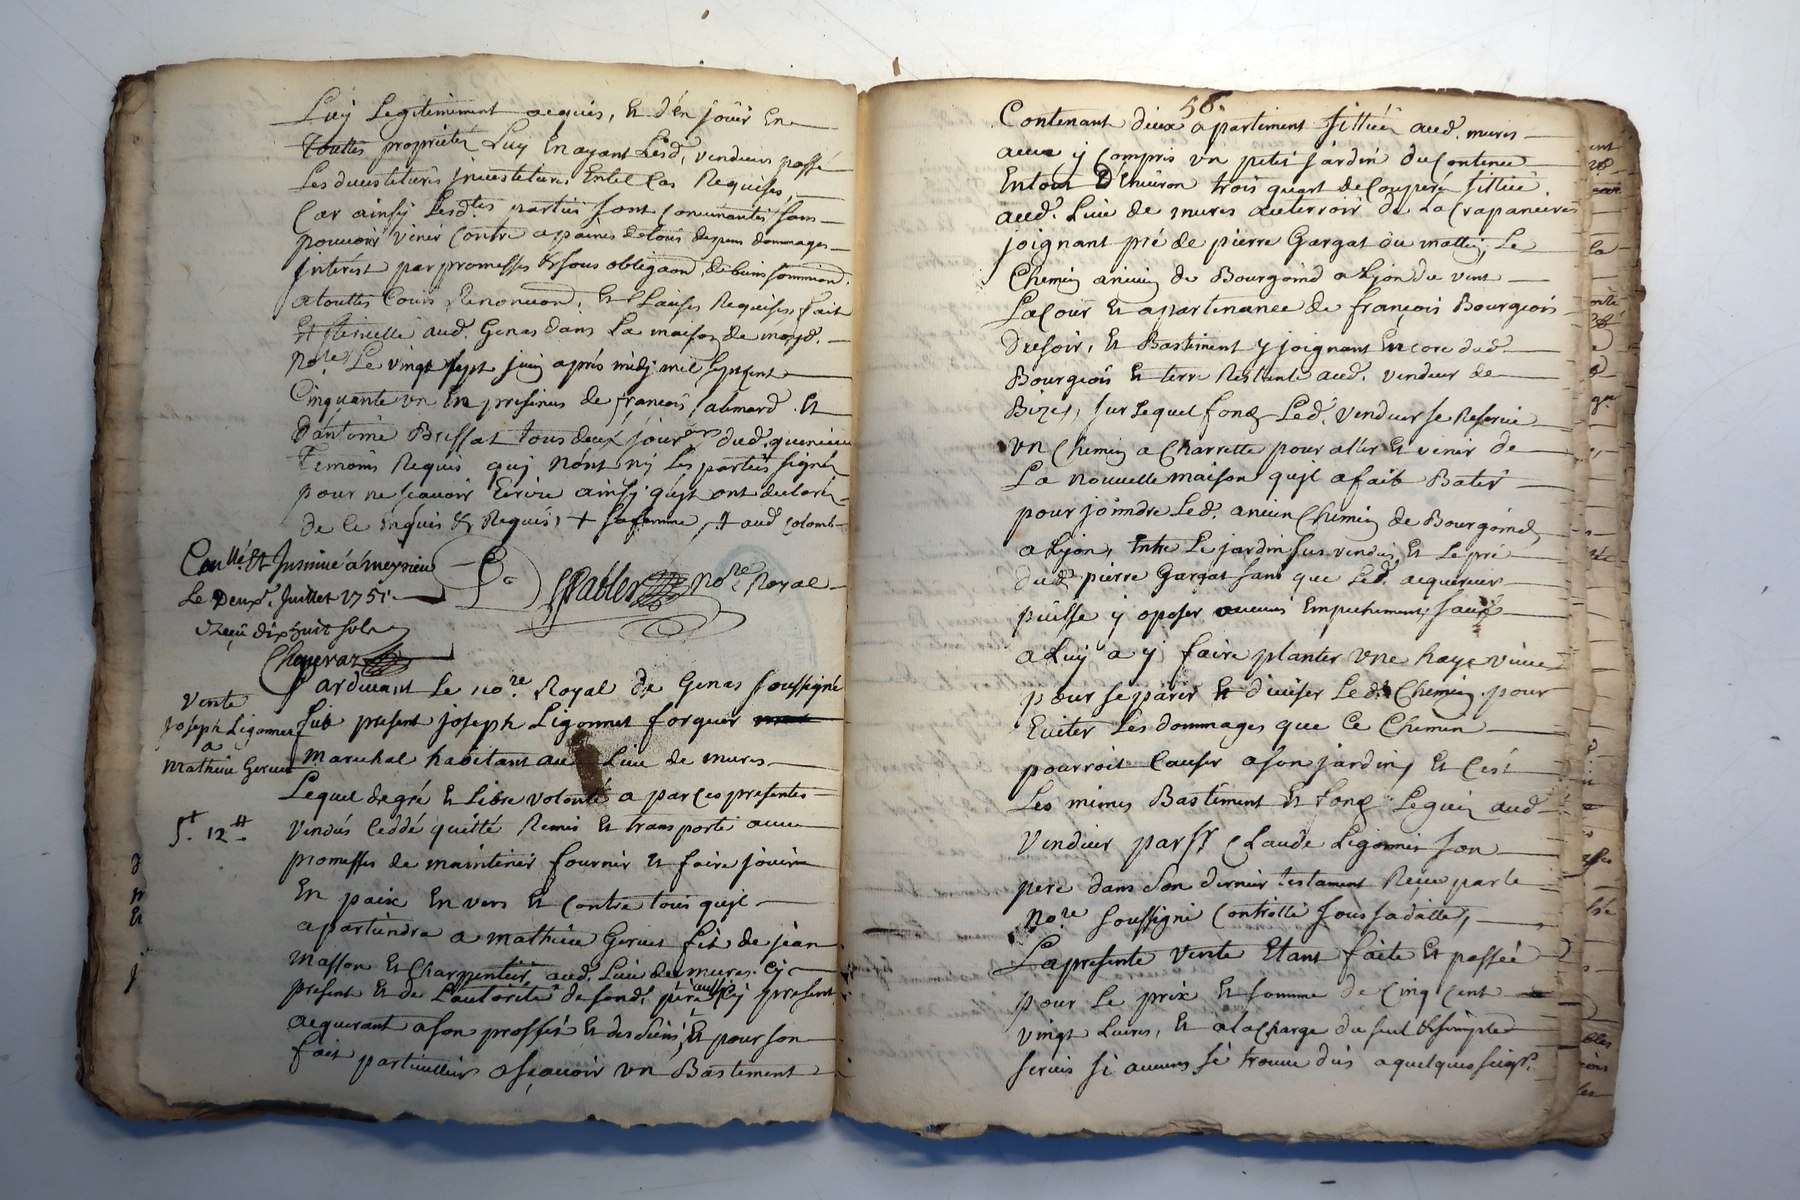 Luy Legitimement acquis, Et d'en jouir En
Touttes proprietés Luy En ayant Lesd. vendeurs passé
Les duestitures jnuestitures Entel Cas Requises,
Car ainsy Lesd.tes parties sont conuenantes sans
pouuoir venir Contre apaines detous depens dommages
jnterest par promesses & sous obligaon. de biens
atouttes Cours Renonciaon. Et Clauses Requises, fait
Et Recitté aud. Genas dans La maison de moyd.
no.re Le vingt sept juin aprés midy mil septcent
Cinquante vn En presences de francois alinard Et
d'antoine Brissat tous deux jour.ers dud.
temoins Requis quy nónt ny Les parties signés
pour ne scauoir Ecrire ainsy qu'yt ont declaré
de Ce Enquis & Requis, + sa femme, + aud colomb
Con.llé Et Jnsinué á meysieu
Le Deux.e Juillet 1751
Receû dix huit sols
no.re Royal
pardeuant Le no.re Royal de Genas soussigné
Vente
joseph Ligonnet
a
mathieu Geruet
fut present joseph Ligonnet forgeur
marechal habitant au Lieu de mures
Lequel degré Et Libre volonté a par Ces presentes
5.t 12.tt
Vendús Ceddé quitté Remis Et transporté auec
promesses de maintenir fournir Et faire jouir
En paix En vers Et Contre tous qu'yl
apartiendra a mathieu Geruet fils de jean
masson Et Charpentier aud. Lieu de mures Cy
present Et de L'autorité de sond. pere aussy Cy present
acquerant a son proffit Et des siens, Et pour son
fait particulliers ascauoir vn Bastiment
56.
Contenant deux apartement sittués aud. mures
auec y Compris vn petit jardin du Contenu
Entout D'Enuiron trois quart de Couperé sittué
aud. Lieu de mures auterroir de La Crapaneures
joignant pré de pierre Gargat du mattin, Le
Chemin ancien de Bourgoind a Lyon du vent
La Cour Et apartenance de françois Bourgeois
du soir, Et Bastiment y joignant Encore dud.
Bourgeois Et terre Restante aud. vendeur de
Bize, sur Lequel fond Led. vendeur se Reserue
vn Chemin a Charrette pour aler Et venir de
La nouuelle maison qu'yl a fait Batir
pour joindre Led. ancien Chemin de Bourgoind
a Lyon, Entre Le jardin sus vendu Et Le pré
dud. pierre Gargat sans que Led. acquereur
puisse y oposer aucuns Empechement, sauf
a Luy a y faire planter vne haye viue
pour separer Et diuiser Led. Chemin pour
Euiter Les dommages que Ce Chemin
pourroit Causer a son jardin, Et C'ést
Les mémes Bastiment Et fond Legué aud
Vendeur par sr Claude Ligonnet son
pere dans son dernier testament Receu par Le
no.re soussigné Controllé sous sa datte,
La presente vente Etant faite Et passée
pour Le prix Et somme de Cinq Cent
vingt Liures, Et a la Charge du seul & simple
seruis si aucuns se trouue dús a quelques seigr.